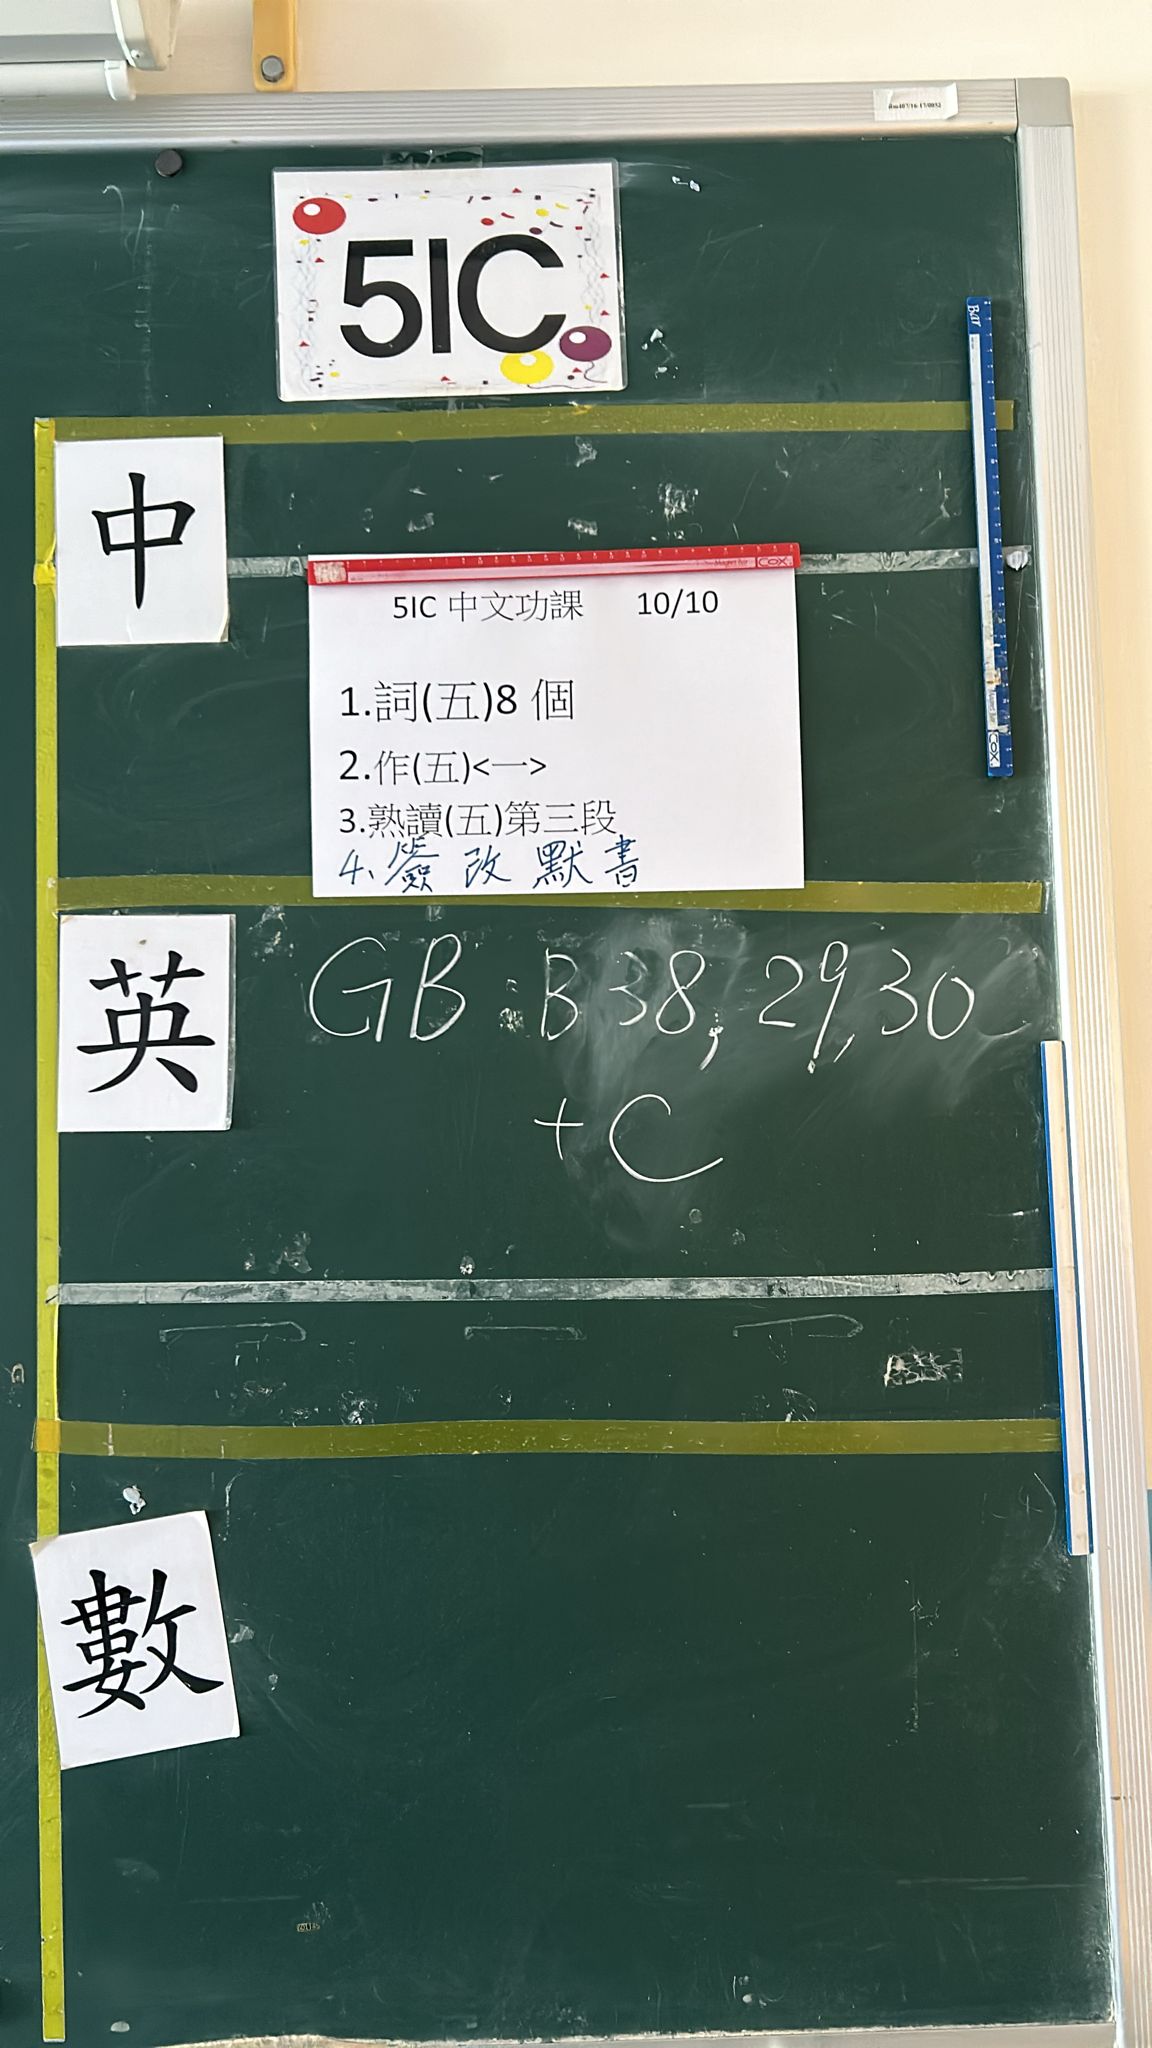 5IC
中
5IC 中文功課 10/10
1.詞(五)8 個
2.作(五)<一>
3.熟讀(五)第三段
4、簽改默書
英
GB : B 38, 29, 30
+ C
數
COX
COX